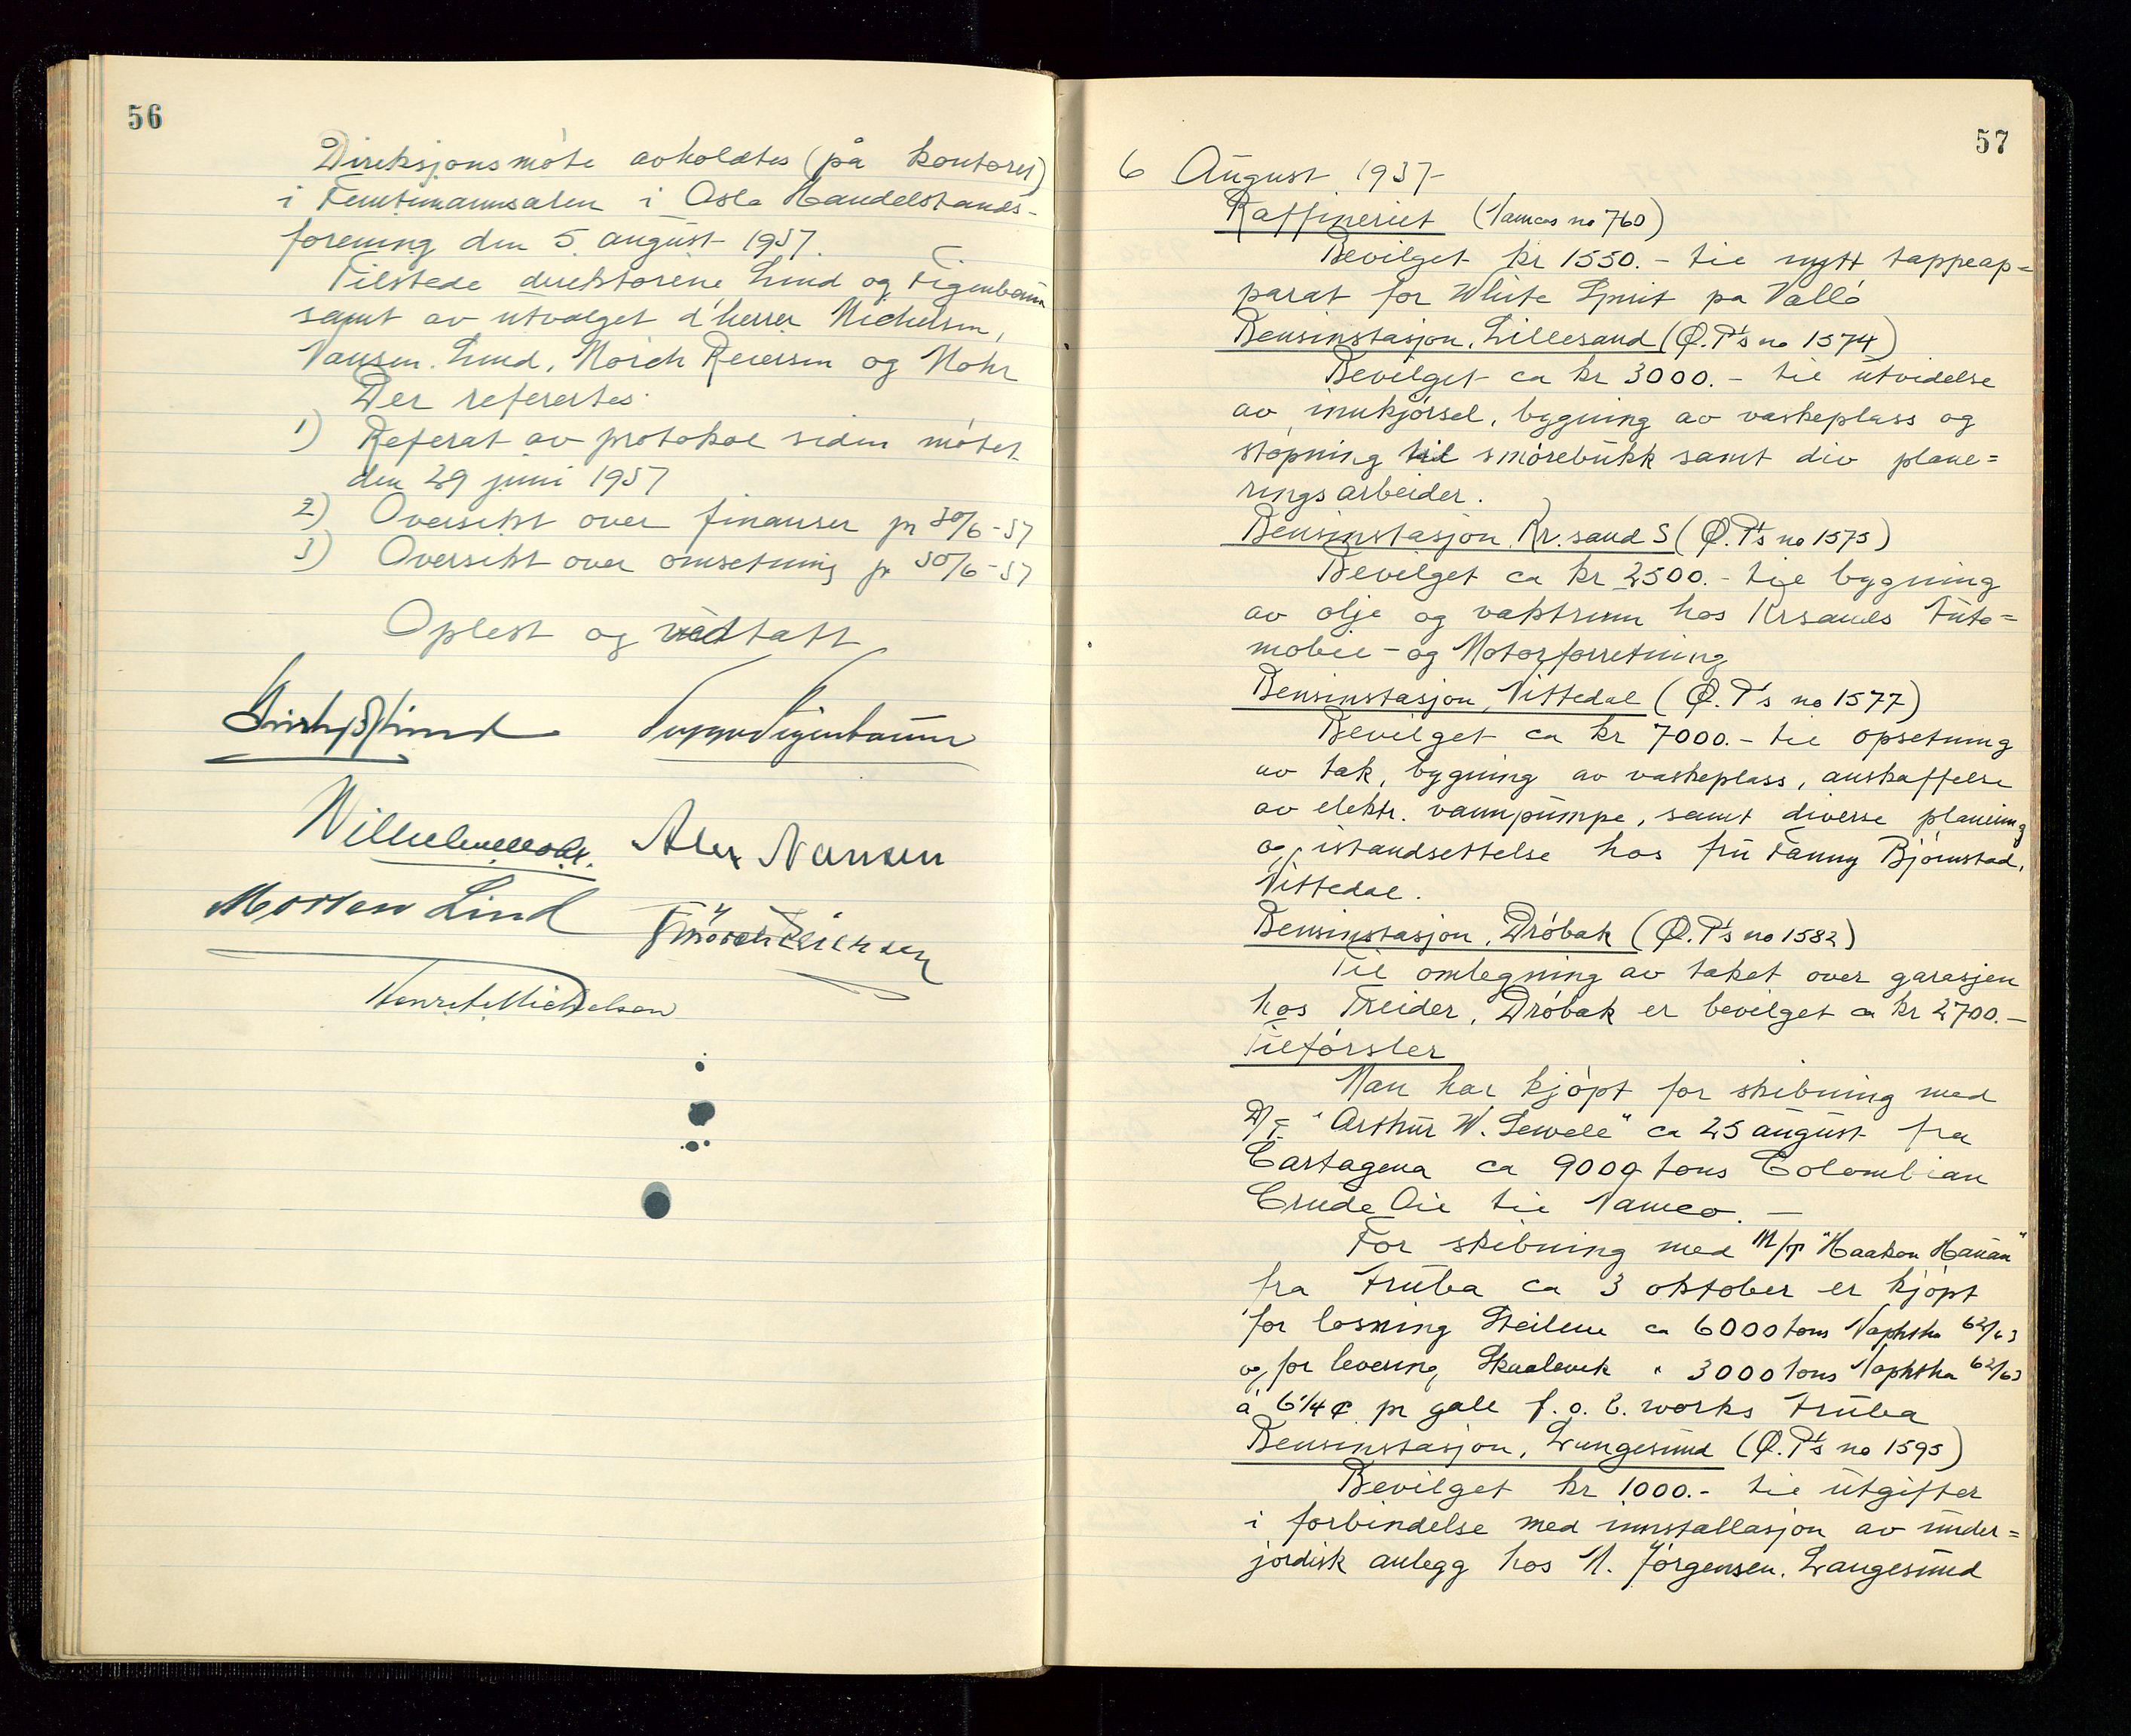 56
Direksjonsmøte avholdtes (på kontoret)
i Femtimannsalen i Oslo Handelstands-
forening den 5 august 1937.
Tilstede direktørene Lind og Figenbaum
samt av utvalget d'herrer Michelsen,
Nansen. Lind, Mørch Reiersen og Mohr
Der refertes:
1) Referat av protokol siden møtet
den 29 juni 1937
2) Oversikt over finanser pr 30/6-37
3) Oversikt over omsetning pr 30/6-37
Oplest og vedtatt
Figenbaum
Wilhelm Mohr. Alex Nansen
Morten Lind Mørch Reiersen
Henrik Michelsen
57
6 August 1937
Raffineriet (Vamcos no 760)
Bevilget kr 1550.- til nytt tappeap=
parat for White Spirit på Vallø
Bensinstasjon, Lillesand (Ø.P's no 1574)
Bevilget ca kr 3000.- til utvidelse
av innkjørsel, bygning av vaskeplass og
støpning til smørebukk samt div plane=
ringsarbeider.
Bensinstasjon, Kr.sand S (Ø.P's no 1575)
Bevilget ca kr 2500.- til bygning
av olje og vaktrum hos Krsands Auto=
mobil- og Motorforretning
Bensinstasjon, Nittedal (Ø.P's no 1577)
Bevilget ca kr 7000.- til opsetning
av tak, bygning av vaskeplass, anskaffelse
av elektr. vannpumpe, samt diverse planering
og istandsettelse hos fru Fanny Bjørnstad,
Nittedal.
Bensinstasjon, Drøbak (Ø.P's no 1582)
Til omlegning av taket over garasjen
hos Treider, Drøbak er bevilget ca kr 2700.-
Tilførsler
Man har kjøpt for skibning med
D/T "Arthur W. Sewell" ca 25 august fra
Cartagena ca 9000 tons Colombian
Crude Oil til Vamco. -
For skibning med M/T "Haakon Hauan"
fra Aruba ca 3 oktober er kjøpt
for losning Steilene ca 6000 tons Naphtha 62/63
og for levering Skaalevik " 3000 tons Naphtha 62/63
á 6 1/4 ¢ pr gall f.o.b. works Aruba
Bensinstasjon, Langesund (Ø.P's no 1595)
Bevilget kr 1000.- til utgifter
i forbindelse med innstallasjon av under=
jordisk anlegg hos N. Jørgensen. Langesund